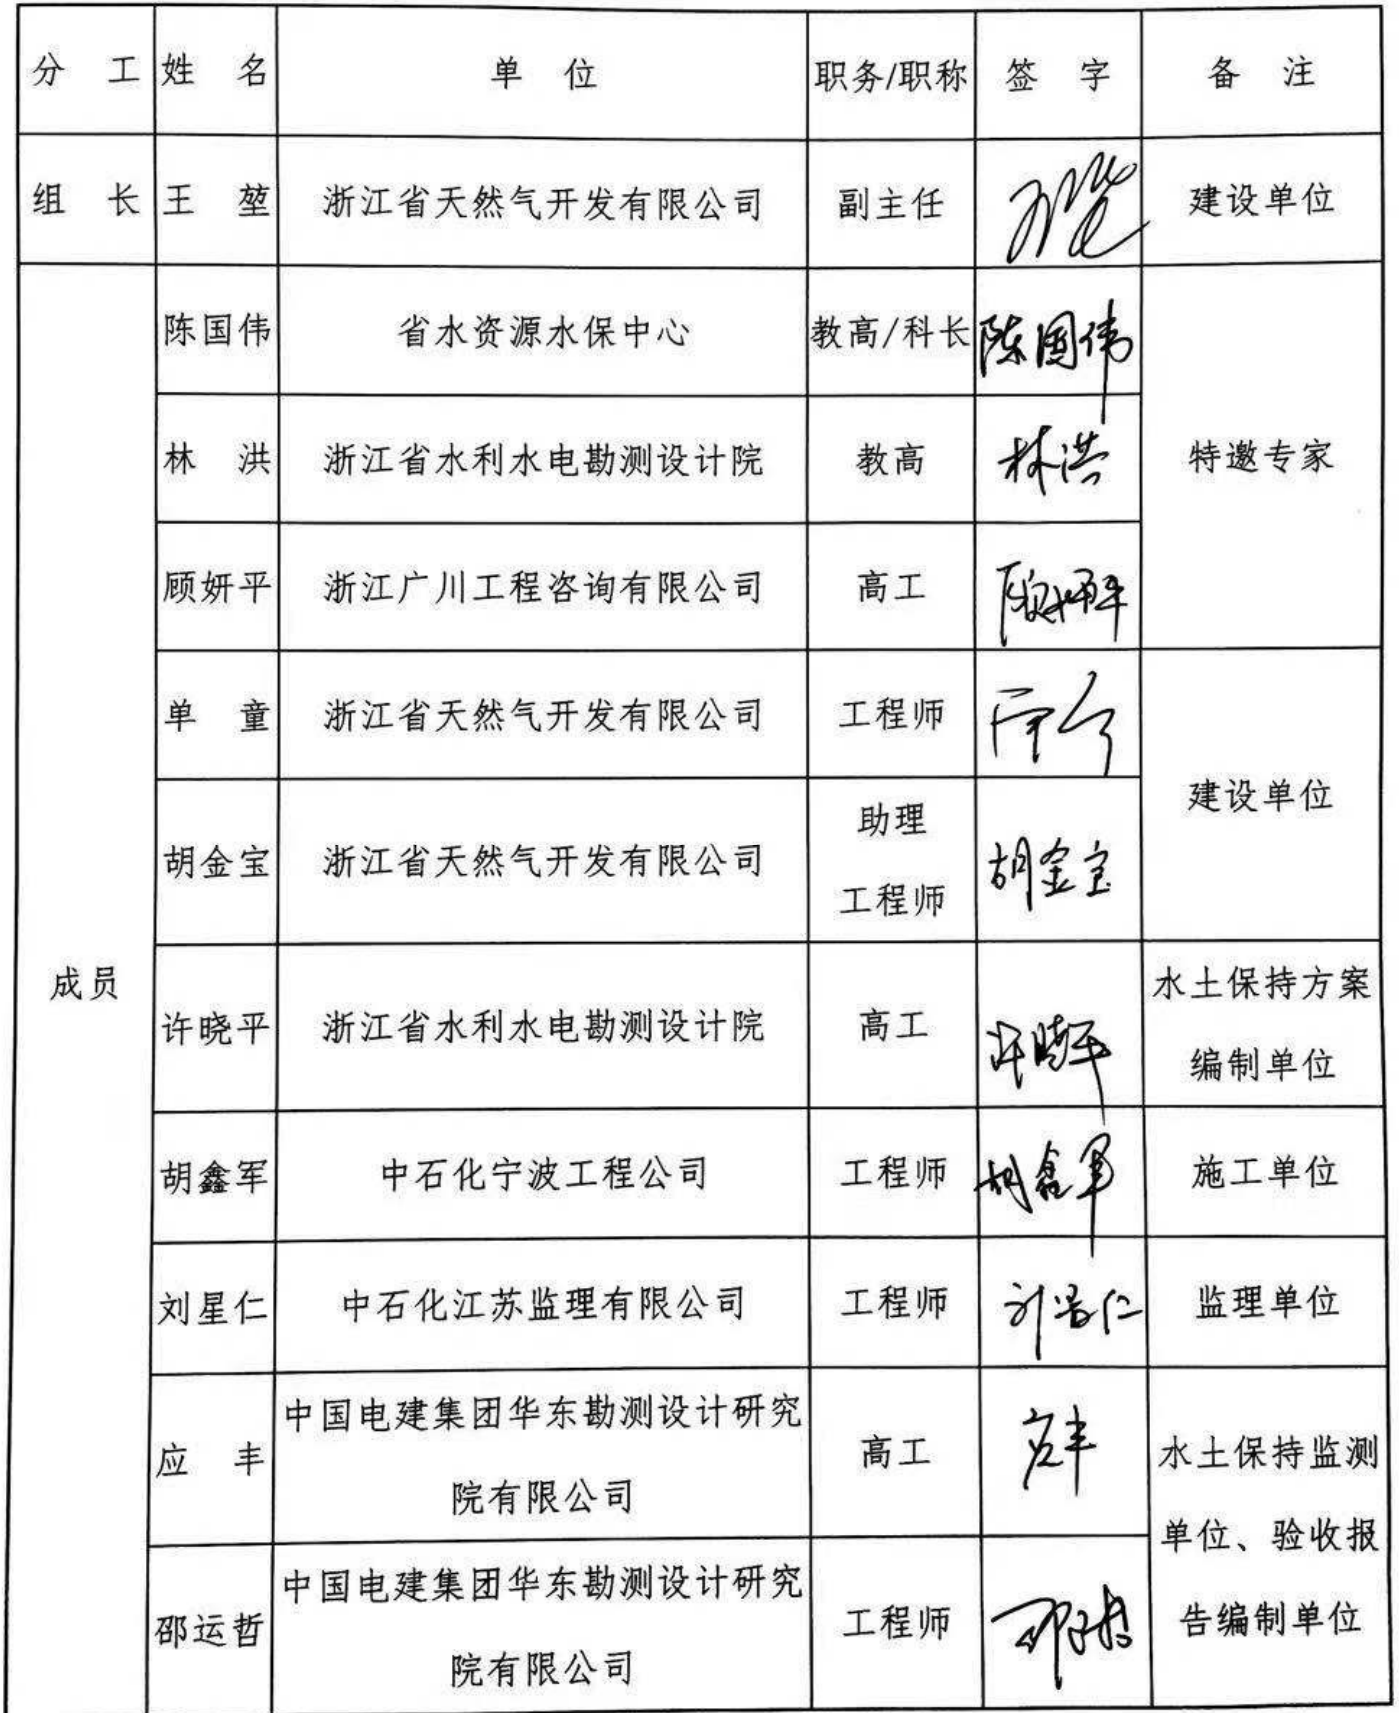 分 工 姓 名 单 位 职务/职称 签 字 备 注
组 长 王 堃 浙江省天然气开发有限公司 副主任 建设单位
成员
陈国伟 省水资源水保中心 教高/科长 陈国伟
特邀专家
林 洪 浙江省水利水电勘测设计院 教高 林洪
顾妍平 浙江广川工程咨询有限公司 高工 顾妍平
单 童 浙江省天然气开发有限公司 工程师
建设单位
胡金宝 浙江省天然气开发有限公司 助理
工程师 胡金宝
许晓平 浙江省水利水电勘测设计院 高工 许晓平 水土保持方案
编制单位
胡鑫军 中石化宁波工程公司 工程师 胡鑫军 施工单位
刘星仁 中石化江苏监理有限公司 工程师 刘星仁 监理单位
应 丰 中国电建集团华东勘测设计研究
院有限公司 高工 应丰
水土保持监测
单位、验收报
告编制单位
邵运哲 中国电建集团华东勘测设计研究
院有限公司 工程师